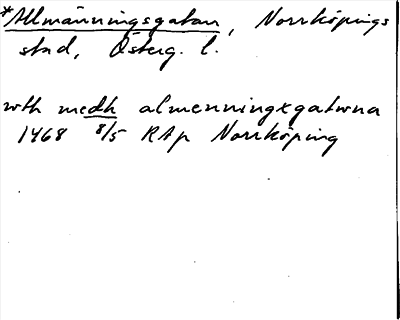 *Allmänningsgatan, Norrköpings
stad, Österg. l.
wth medh almenningxgatwna
1468 8/5 RAp Norrköping